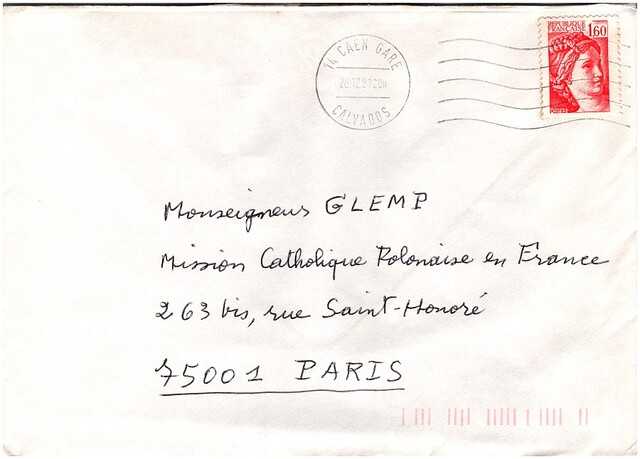 REPUBLIQUE
FRANÇAISE 1,60
14 CAEN GARE
CALVADOS
Monseigneur GLEMP
Mission Catholique Polonaise en France
263 bis, rue Saint-Honoré
75001 PARIS